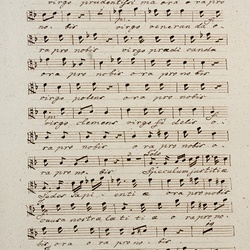 virgo prudentissi ma o ra o ra pro
no bis virgo veneran di o
ra pro nobis virgo prædi canda
o ra pro nobis o ra pro no bis
virgo potens o ra pro nobis
virgo clemens virgo fi delis o
ra pro nobis o ra pro nobis o
ra pro no bis Speculum justitiæ
Sedes Sapi entiæ ora pro nobis
Causa nostræ læ ti ti æ o ra pro no
bis o ra pro no bis